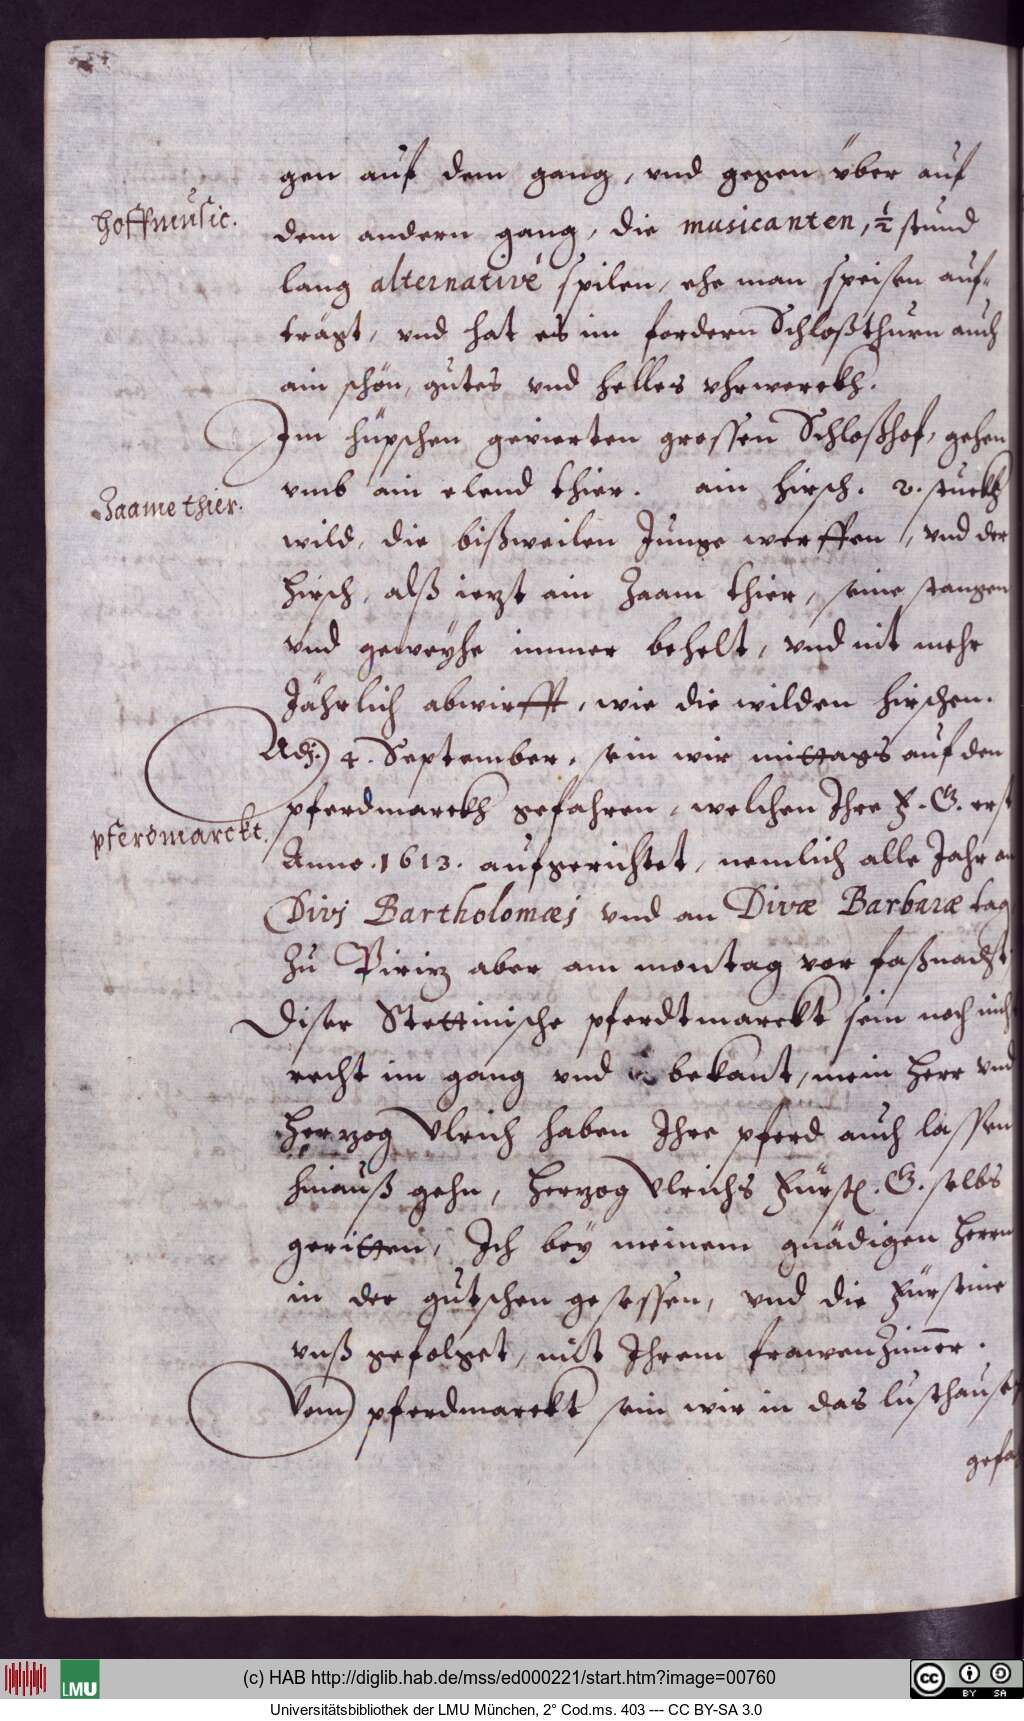 gen auf dem gang, vnd gegen über auf
hoffmusic.
dem andern gang, die musicanten, ½ stund
lang alternativé spilen, ehe man speisen auf-
trägt, vnd hat es im fordern Schloßthurn auch
ain schön, gutes vnd helles vhrwerckh.
Im hüpschen gevierten grossen Schloßhof, gehen
Zaame thier.
vmb ain elend thier. ain hirsch. 2. stuckh
wild, die bißweilen Junge werffen, vnd der
hirsch, alß ietzt ain Zaam thier, seine stangen
vnd geweyhe immer behelt, vnd nit mehr
Jährlich abwirfft, wie die wilden hirschen.
Adj. 4. September, sein wir mittags auf den
pferdmarckt.
pferdmarckh gefahren, welchen Ihre F. G. erst
Anno. 1613. aufgerichtet, nemlich alle Jahr an
Divj Bartholomæj vnd an Divæ Barbaræ tag
Zu Piritz aber am montag vor faßnacht
Diser Stettinische pferdtmarckt sein noch nicht
recht im gang vnd bekant, mein Herr vnd
Herzog Vlrich haben Ihre pferd auch lassen
hinauß gehn, Herzog Vlrichs Fürstl. G. selbs
geritten, Ich bey meinem gnädigen Herrn
in der gutschen gesessen, vnd die Fürstine
vnß gefolget, mit Ihrem frawenZimer.
Vom pferdmarckt sein wir in das lusthauß
gefa
(c) HAB http://diglib.hab.de/mss/ed000221/start.htm?image=00760
LMU
cc BY SA
Universitätsbibliothek der LMU München, 2° Cod.ms. 403 --- CC BY-SA 3.0